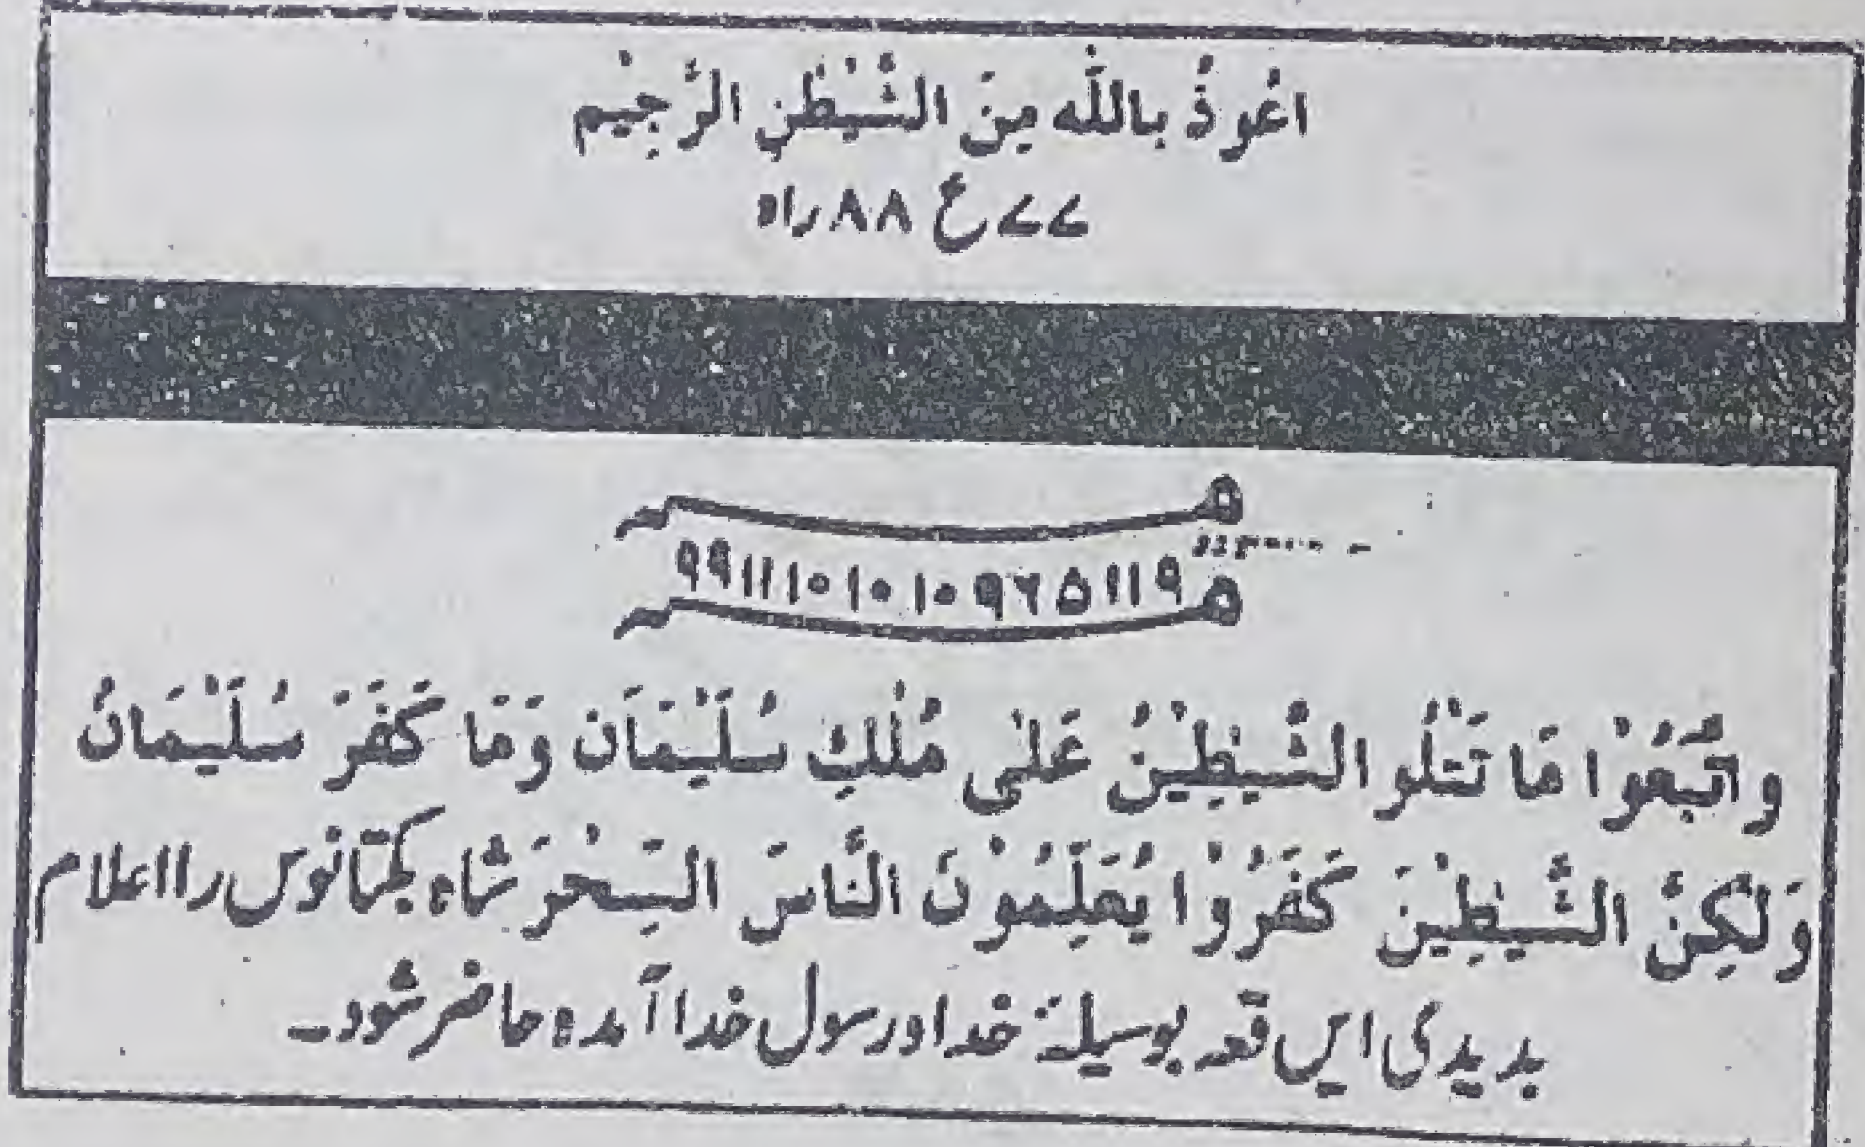 اعُوذُ بِاللّٰه مِنَ الشَّیْطٰنِ الرَّجِیْم
۷۷ ع ۸۸ راہ
۹۹۱۱۱۱۰۱۰۱۰۹۶۵۱۱۹
وَاتَّبَعُوْا مَا تَتْلُو الشَّیٰطِیْنُ عَلٰی مُلْكِ سُلَیْمَانَ وَمَا كَفَرَ سُلَیْمَانُ
وَلٰكِنَّ الشَّیٰطِیْنَ كَفَرُوْا یُعَلِّمُوْنَ النَّاسَ السِّحْرَ شاہ را اعلام
بدیدی ایں بوسیلۂ خدا ورسول خدا آمدہ حاضر شود۔